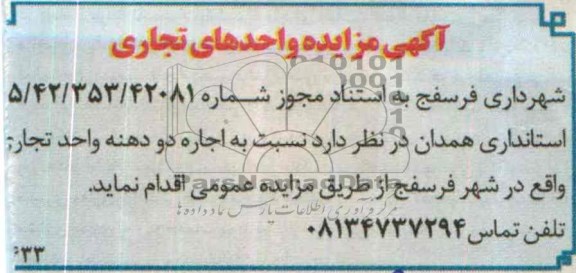 آگهی مزایده واحدهای تجاری
شهرداری فرسفج به استناد مجوز شماره ۵/۴۲/۳۵۳/۴۲۰۸۱
استانداری همدان در نظر دارد نسبت به اجاره دو دهنه واحد تجاری
واقع در شهر فرسفج از طریق مزایده عمومی اقدام نماید.
ParsNamadData
مرکز فرآوری اطلاعات پارس نماد داده ها
تلفن تماس ۰۸۱۳۴۷۳۷۲۹۴
۶۳۳